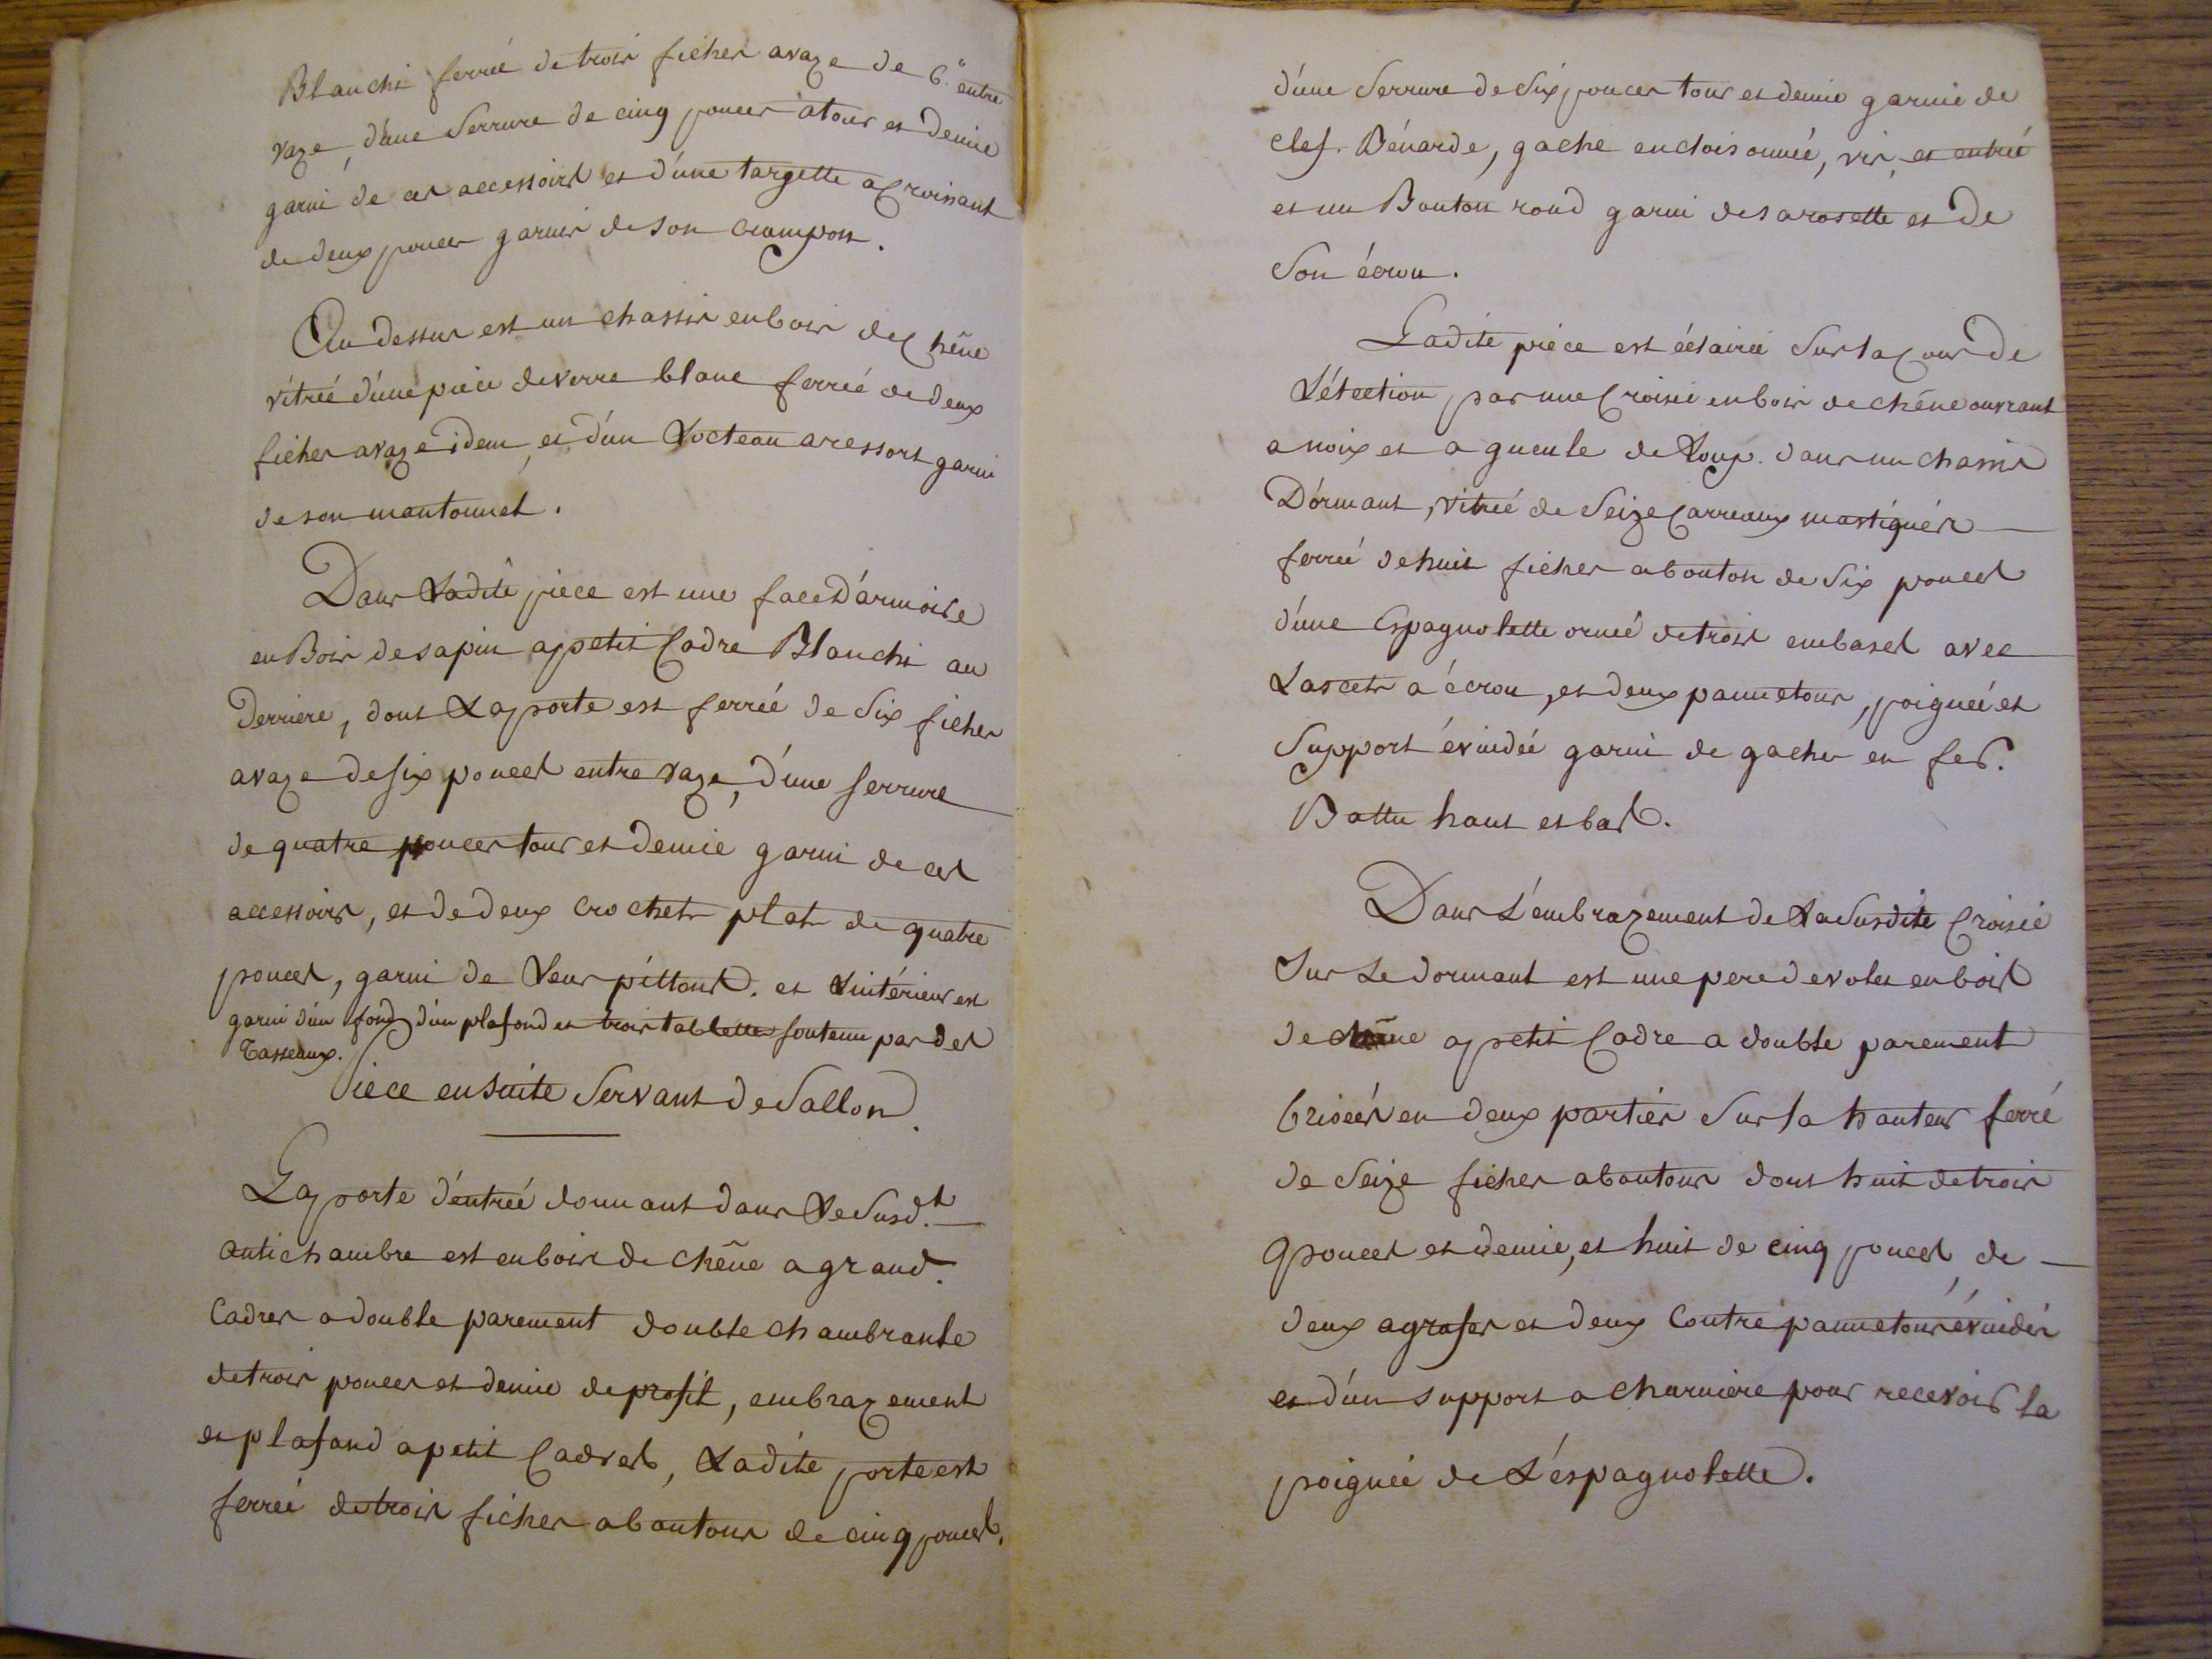 Blanchi ferrée de trois fiches avaze de 6.° entre
vaze, d'une Serrure de cinq pouces atour et demie
garni de ces accessoires et d'une targette a Croissant
de deux pouces garnis de son crampon.
Au dessus est un chassis en bois de Chêne
vitrée d'une piece de verre blanc ferrée de deux
fiches avaze idem, et d'un Locteau a ressort garni
de son mantonnet.
Dans Ladite piece est une face D'armoire
en Bois de sapin a petit Cadre Blanchi au
Derriere, dont La porte est ferrée de Six fiches
avaze de six pouces entre vaze, d'une serrure
de quatre pouces tour et Demie garni de ces
accessoirs, et de deux crochets plats de quatre
pouces, garni de Leur pittons. et L'intérieur est
garni d'un fond d'un plafond et trois tablettes soutenu par des
Tasseaux.
Piece en Suite Servant de Sallon.
La porte d'entrée donnant dans Le Susd.t
antichambre est en bois de Chêne a grand.
Cadres a double parement double chambranle
de trois pouces et demie de profil, embrazement
et plafond a petit Cadres, Ladite porte est
ferrée de trois fiches a boutons de cinq pouces.
d'une Serrure de Six pouces tour et demie garnie de
clef. Bénarde, gache encloisonnée, vis, et entrée
et un Bouton rond garni de sa rosette et de
Son écrou.
Ladite piéce est éclairée Sur la Cour de
L'étection par une Croisée en bois de chêne ouvrant
a noix et a gueule de Loup. dans un chassis
Dormant, vitrée de Seize Carreaux mastiqués
ferrée de huit fiches a bouton de Six pouces
d'une Espagnolette ornée de trois embases avec
Lascets a écrou, et deux pannetons, poignée et
Support évuidée garni de gaches en fer.
Battu haut et bas.
Dans L'embrazement de La Susdite Croisée
Sur Le dormant est une pere de volet en bois
de chêne a petit Cadre a double parement
briseés en deux parties Sur la hauteur ferré
de Seize fiches a boutons dont huit de trois
pouces et demie, et huit de cinq pouces, de
deux agrafes et deux Contre pannetons évuidés
et d'un support a charniere pour recevoir la
poignée de L'éspagnolette.